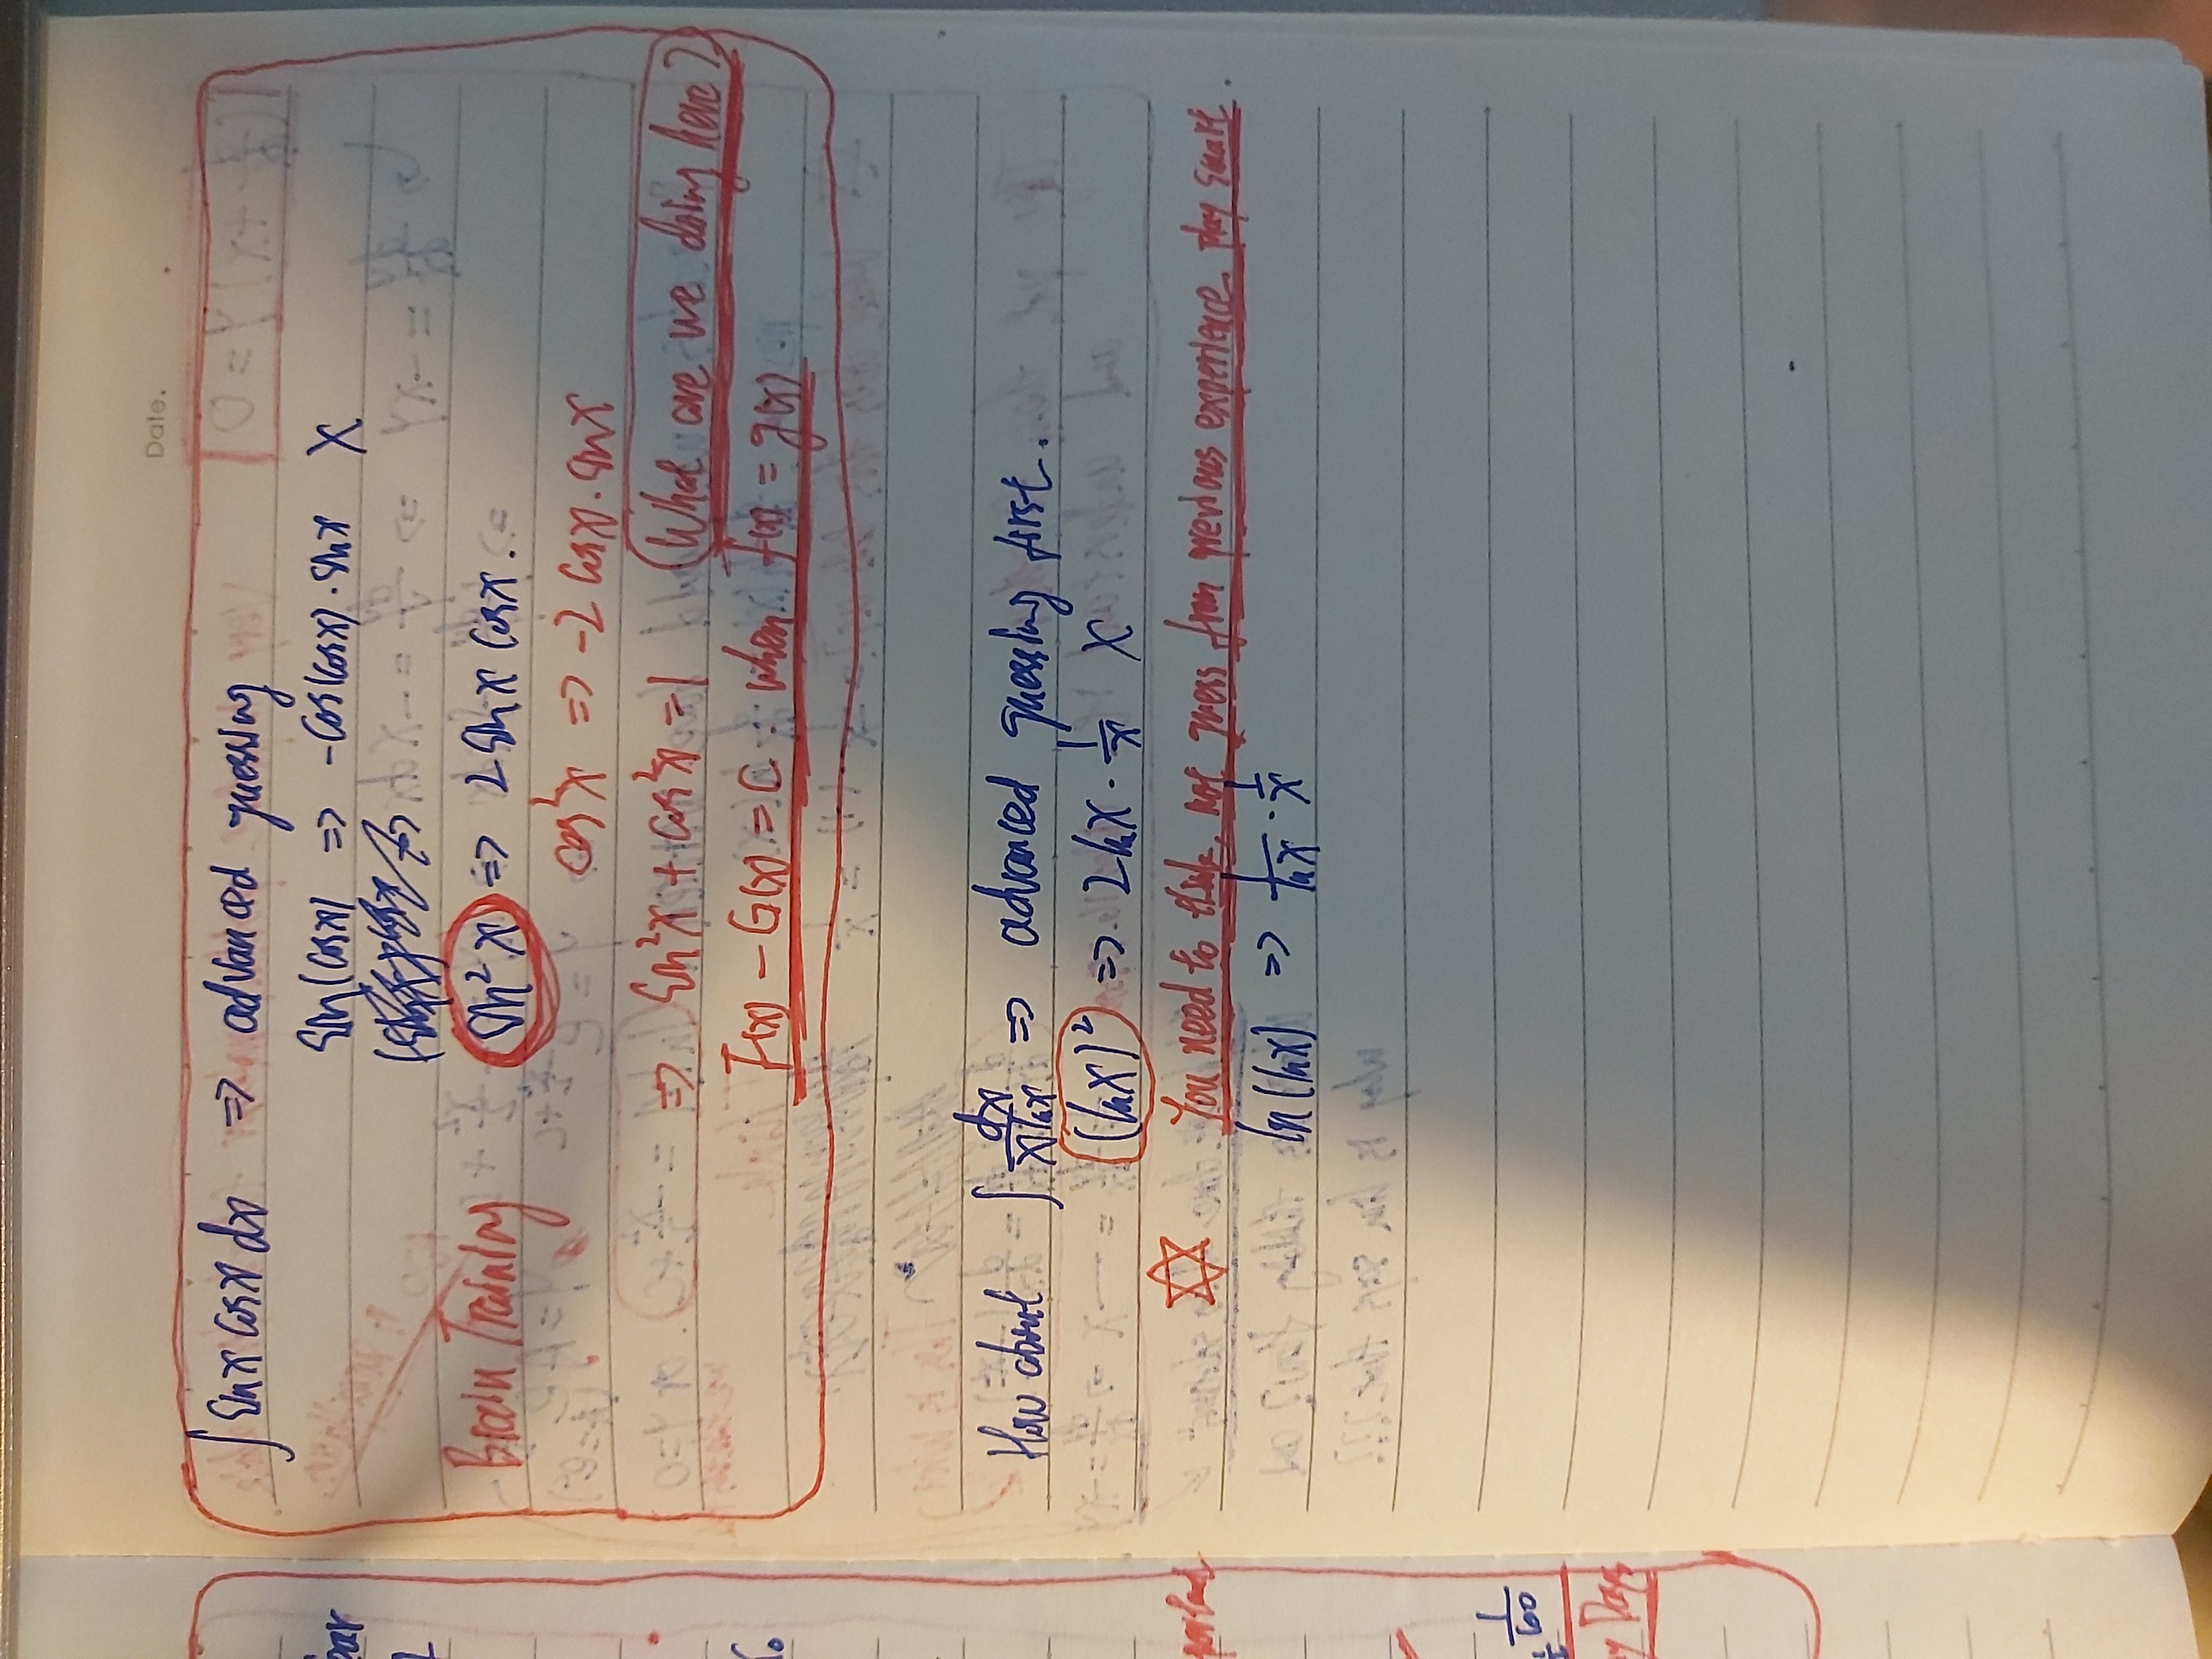 Date.
∫ sinx cosx dx => advanced guessing
sin(cosx) => -cos(cosx)·sinx X
Brain Training sin²x => 2 sinx cosx.
cos²x => -2 cosx·sinx
=> sin²x + cos²x = 1 (What are we doing here?)
F(x) - G(x) = C when f(x) = g(x)
How about ∫ dx/(x lnx) => advanced guessing first.
(lnx)² => 2lnx · 1/x X
You need to think, not guess from previous experience. play smart.
ln(lnx) => 1/lnx · 1/x
1/60
Days